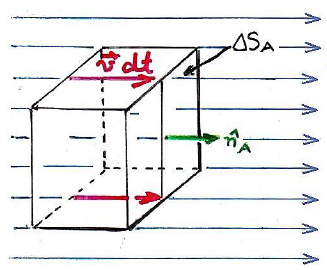 v⃗ dt
ΔS_A
n̂_A